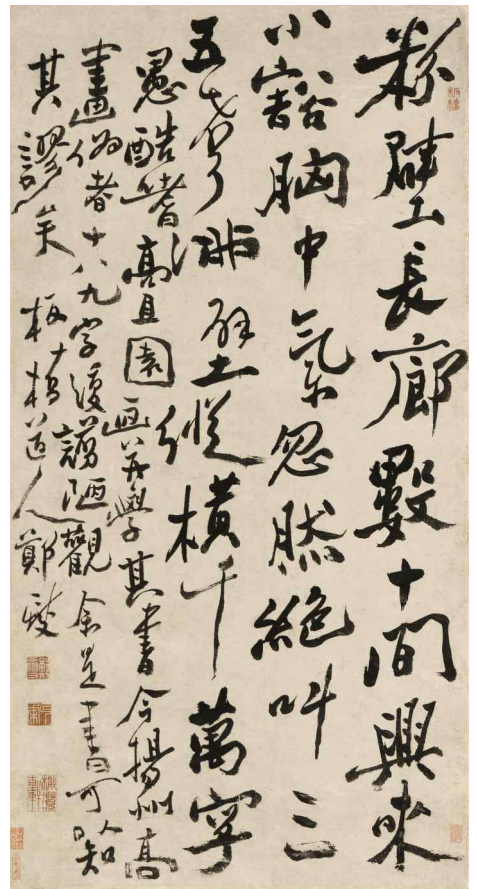 粉壁長廊數十間興來
小豁胸中氣忽然絕叫三
五聲滿壁縱橫千萬字
愚酷嗜高且園畫并學其書今揚州高
畫偽者十八九字復譾陋觀余是書可以知
其謬矣 板橋道人鄭燮